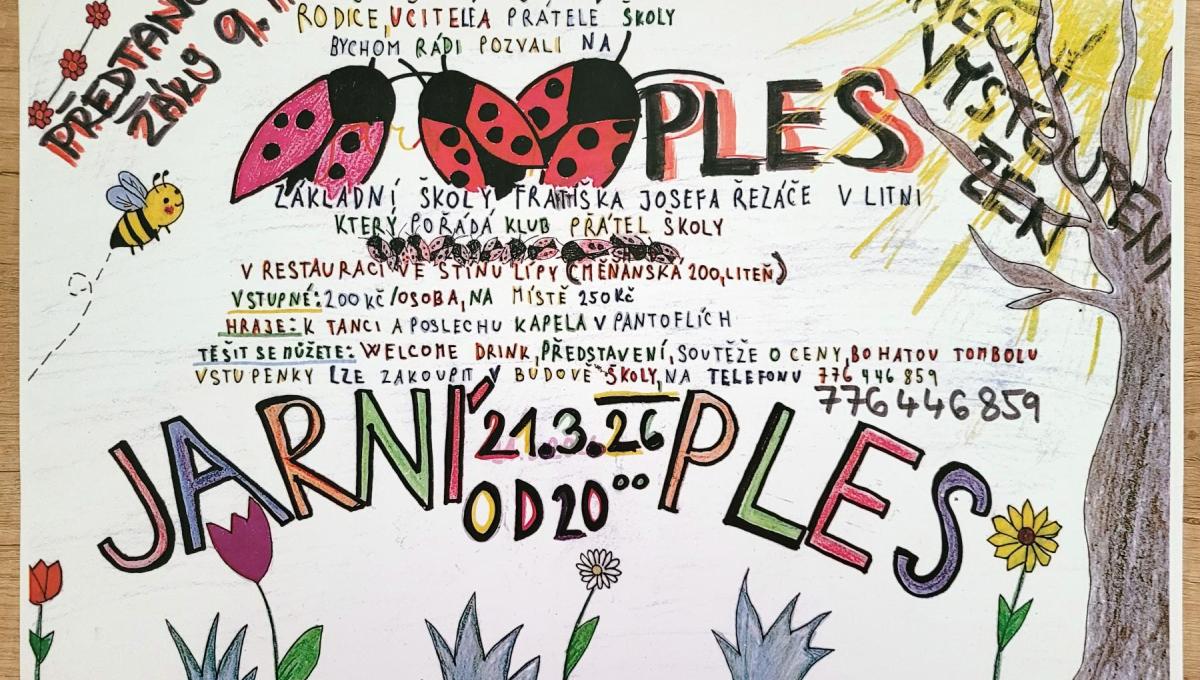 PŘEDTANČ
ŽÁKŮ 9. 
RODIČE, UČITELÉA PRÁTELE ŠKOLY
BYCHOM RÁDI POZVALI NA
PLES
VYSTOUPENÍ
ŽEN
ZÁKLADNÍ ŠKOLY FRATIŠKA JOSEFA ŘEZÁČE V LITNI
KTERÝ POŘÁDÁ KLUB PŘÁTEL ŠKOLY
V RESTAURACI VE STÍNU LÍPY (MĚŇANSKÁ 200, LITEŇ)
VSTUPNÉ: 200 KČ /OSOBA, NA MÍSTĚ 250 KČ
HRAJE: K TANCI A POSLECHU KAPELA V PANTOFLÍCH
TĚŠIT SE MŮŽETE: WELCOME DRINK, PŘEDSTAVENÍ, SOUTĚŽE O CENY, BOHATOU TOMBOLU
VSTUPENKY LZE ZAKOUPIT V BUDOVĚ ŠKOLY, NA TELEFONU 776 446 859
776446859
JARNÍ PLES
21.3.26
OD 20°°